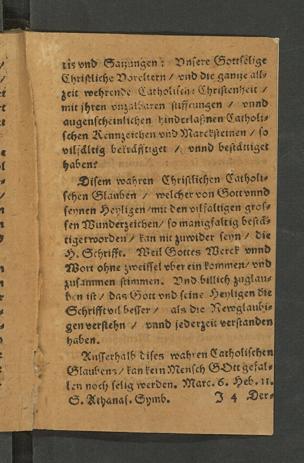 tis vnd Satzungen: Vnsere Gottselige
Christliche Voreltern / vnd die gantze all-
zeit wehrende Catholische Christenheit /
mit jhren vnzalbaren stifftungen / vnnd
augenscheinlichen hinderlaßnen Catholi-
schen Kennzeichen vnd Marcksteinen / so
vilfältig bekräfftiget / vnnd bestättiget
haben.
Disem wahren Christlichen Catholi-
schen Glauben / welcher von Gott vnnd
seynen Heyligen mit den vilfaltigen gros-
sen Wunderzeichen / so manigfaltig bestä-
tiget worden / kan nit zuwider seyn / die
H. Schrifft. Weil Gottes Werck vnnd
Wort ohne zweiffel vber ein kommen / vnd
zusammen stimmen. Vnd billich zuglau-
ben ist / das Gott vnd seine Heyligen die
Schrifft vil besser / als die Newglaubi-
gen verstehn / vnnd jederzeit verstanden
haben.
Ausserhalb dises wahren Catholischen
Glaubens / kan kein Mensch GOtt gefal-
len noch selig werden. Marc. 6. Heb. 11.
S. Athanas. Symb. I 4 Der-